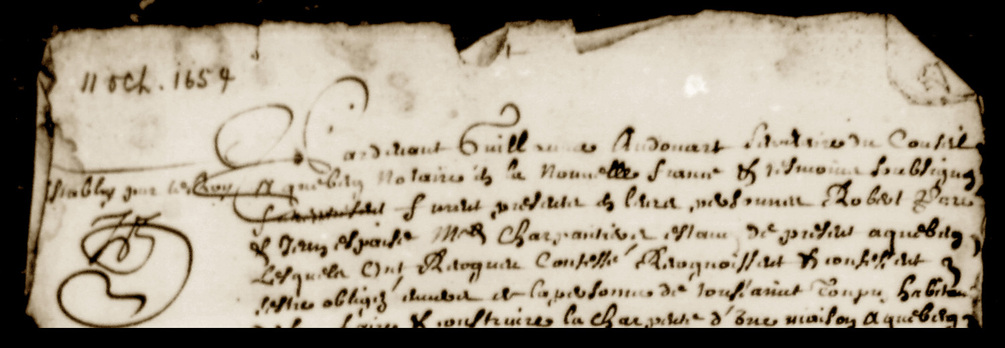 11 oct. 1654
Pardevant Guillaume Audouart Secretaire du Conseil
establby par le Roy, A quebecq Notaire en la Nouvelle france & tesmoins soubsignez
furent presents en leurs personnes Robert Pare
& Jean Mes Charpantiers estans de present a quebecq
Lesquels Ont Recognu Confessé Recognoissent & confessent
sestre obligez envers et la personne de toussainct Toupin habitan
faire & construire la charpente d'une maison a quebecq